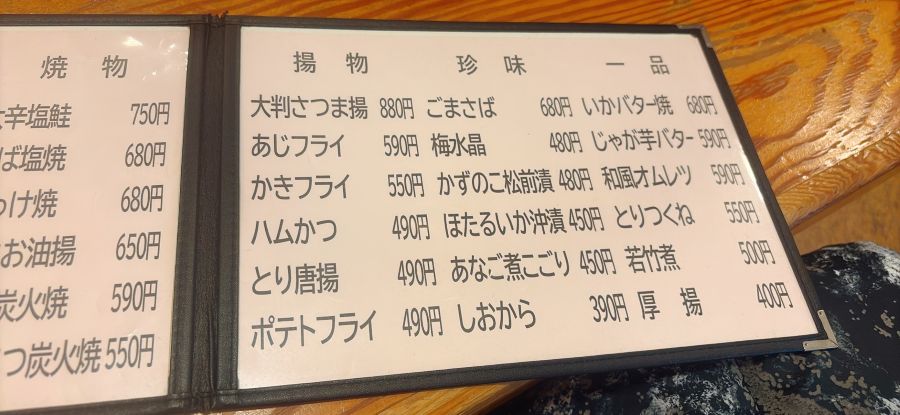 焼物
大辛塩鮭 750円
ば塩焼 680円
っけ焼 680円
お油揚 650円
炭火焼 590円
つ炭火焼 550円
揚物
大判さつま揚 880円
あじフライ 590円
かきフライ 550円
ハムかつ 490円
とり唐揚 490円
ポテトフライ 490円
珍味
ごまさば 680円
梅水晶 480円
かずのこ松前漬 480円
ほたるいか沖漬 450円
あなご煮こごり 450円
しおから 390円
一品
いかバター焼 680円
じゃが芋バター 590円
和風オムレツ 590円
とりつくね 550円
若竹煮 500円
厚揚 400円